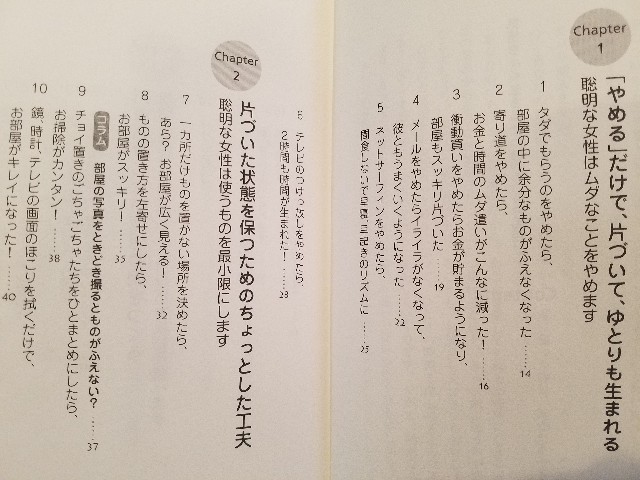 Chapter
1
「やめる」だけで、片づいて、ゆとりも生まれる
聡明な女性はムダなことをやめます
1 タダでもらうのをやめたら、
部屋の中に余分なものがふえなくなった ……14
2 寄り道をやめたら、
お金と時間のムダ遣いがこんなに減った! ……16
3 衝動買いをやめたらお金が貯まるようになり、
部屋もスッキリ片づいた ……19
4 メールをやめたらイライラがなくなって、
彼ともうまくいくようになった ……22
5 ネットサーフィンをやめたら、
間食しないで早寝、早起きのリズムに ……25
6 テレビのつけっ放しをやめたら、
2時間も時間が生まれた! ……28
Chapter
2
片づいた状態を保つためのちょっとした工夫
聡明な女性は使うものを最小限にします
7 一カ所だけものを置かない場所を決めたら、
あら?お部屋が広く見える! ……32
8 ものの置き方を左寄せにしたら、
お部屋がスッキリ! ……35
コラム 部屋の写真をときどき撮るとものがふえない? ……37
9 チョイ置きのごちゃごちゃたちをひとまとめにしたら、
お掃除がカンタン! ……38
10 鏡、時計、テレビの画面のほこりを拭くだけで、
お部屋がキレイになった! ……40